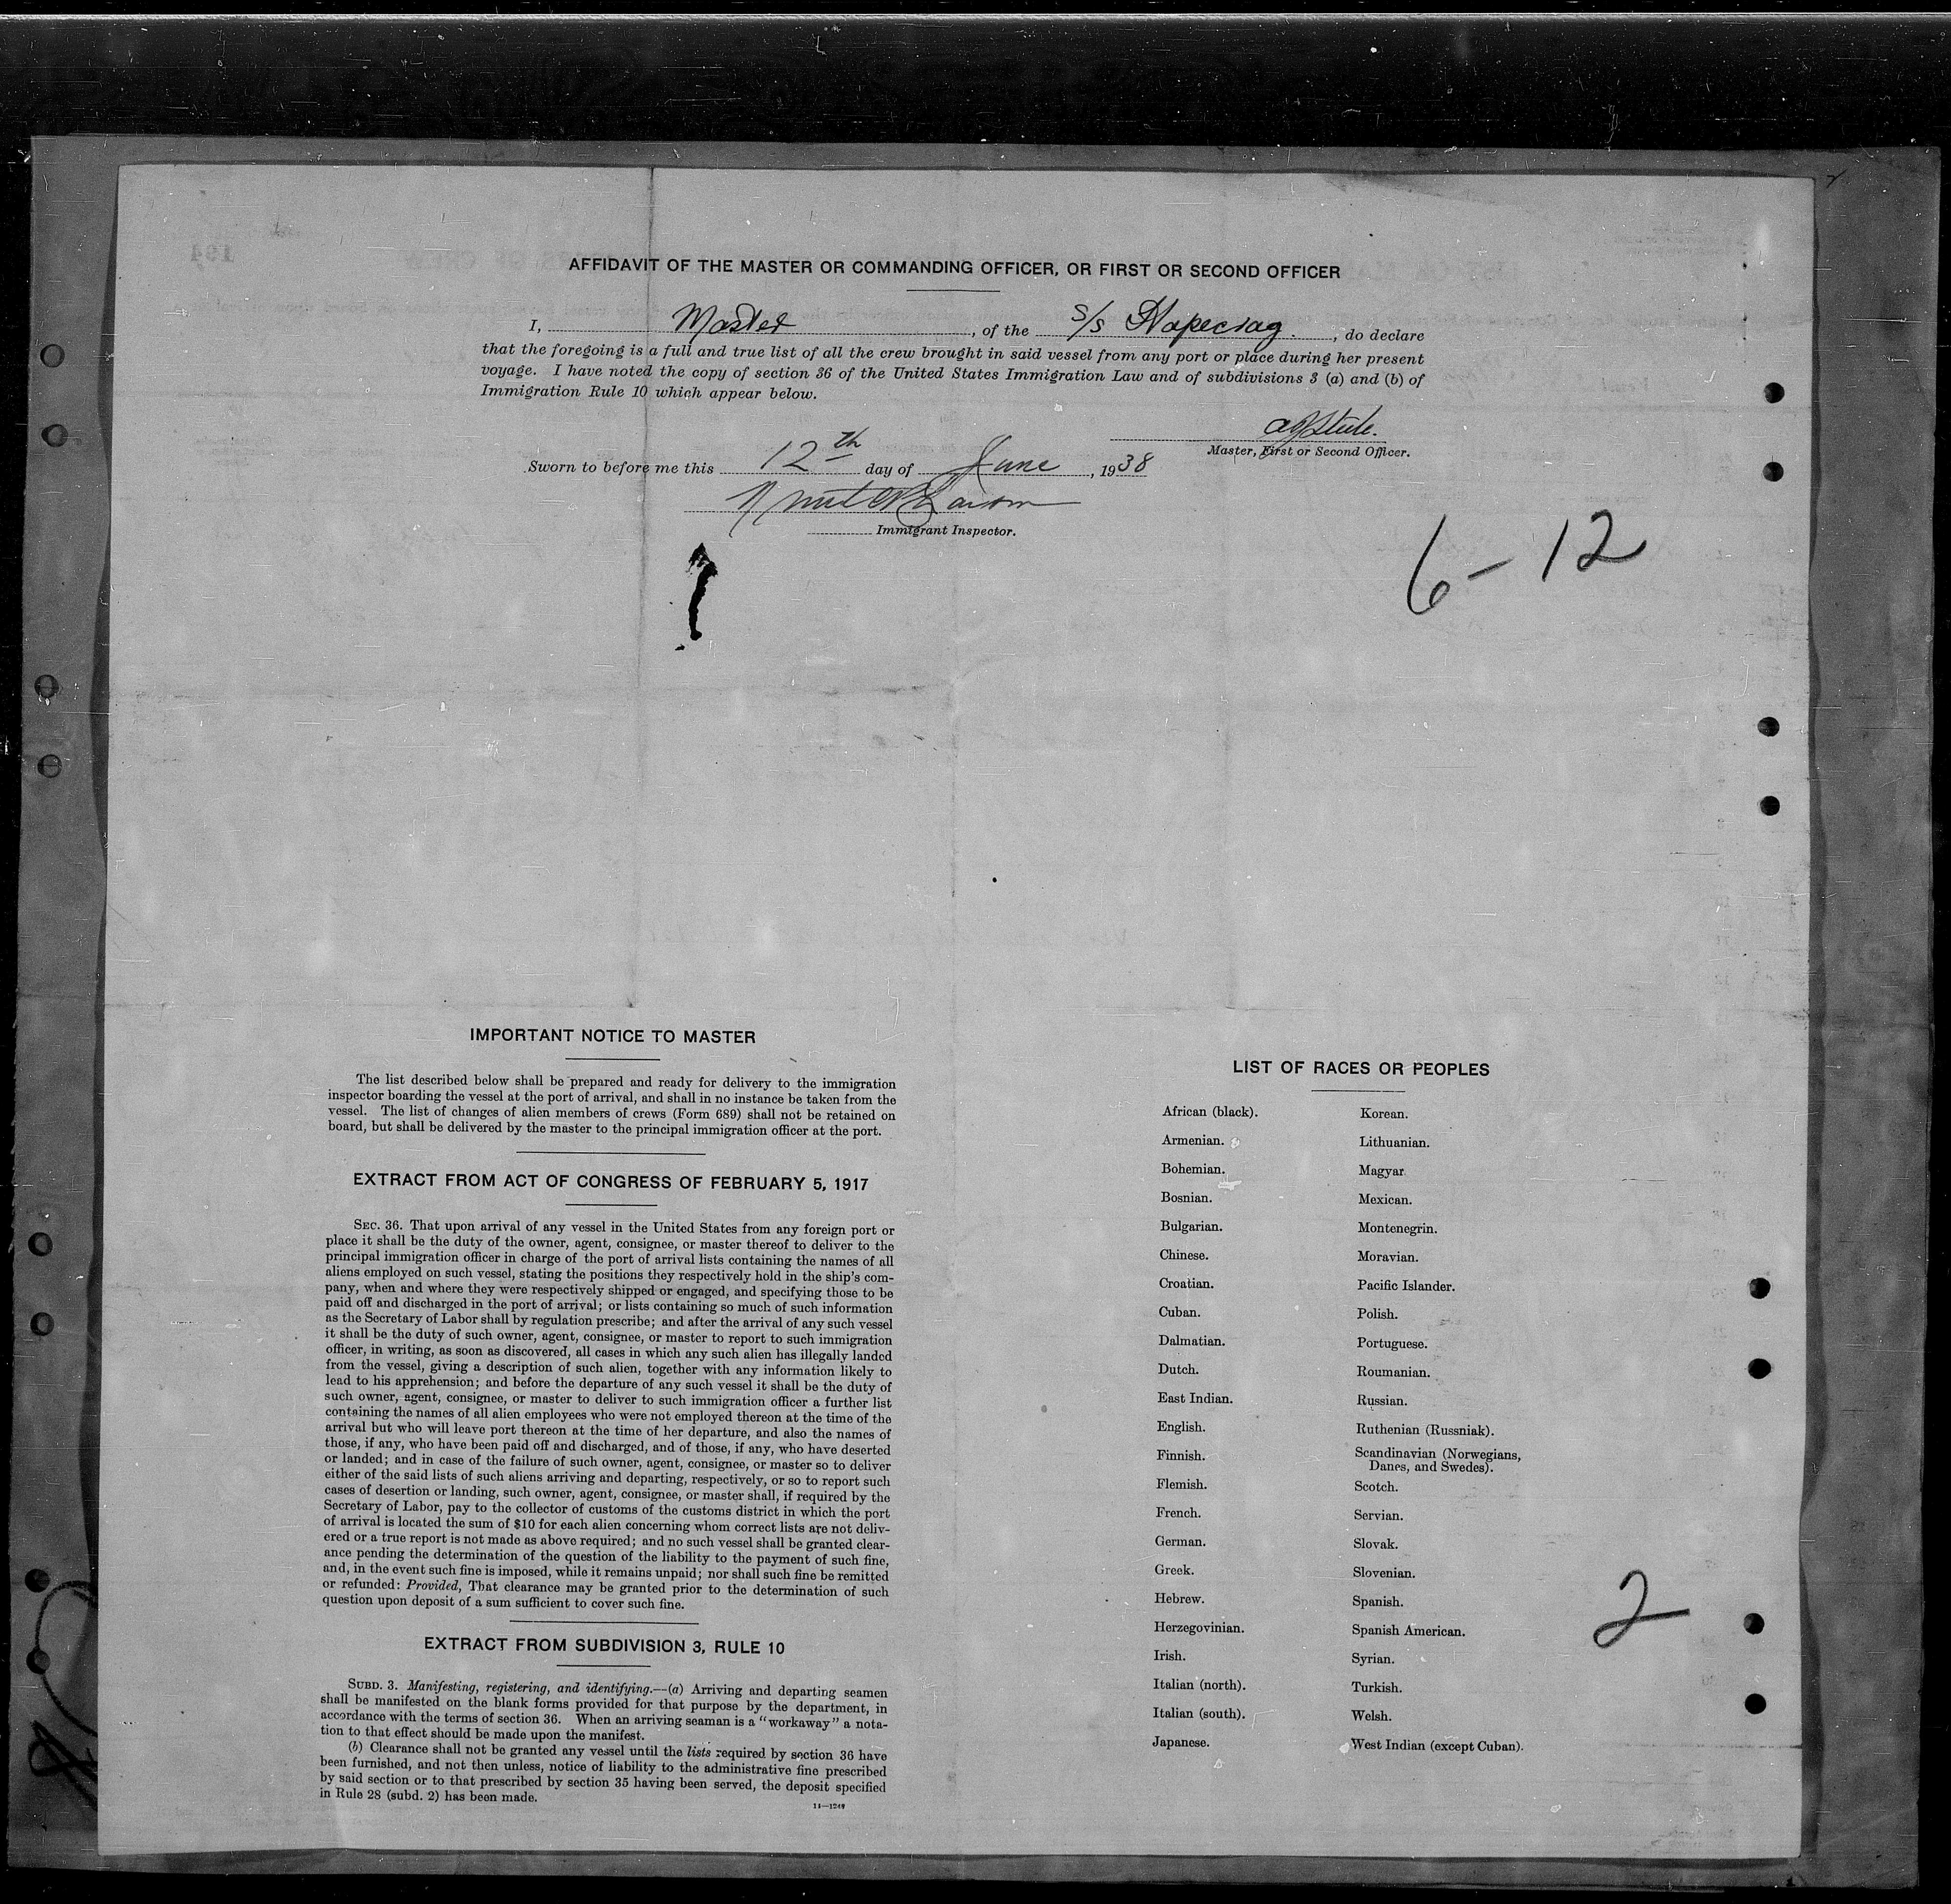 AFFIDAVIT OF THE MASTER OR COMMANDING OFFICER, OR FIRST OR SECOND OFFICER
I, Master, of the S/S Hopecrag., do declare
that the foregoing is a full and true list of all the crew brought in said vessel from any port or place during her present
voyage. I have noted the copy of section 36 of the United States Immigration Law and of subdivisions 3 (a) and (b) of
Immigration Rule 10 which appear below.
Master, First or Second Officer.
Sworn to before me this 12th day of June, 1938
Immigrant Inspector.
6-12
IMPORTANT NOTICE TO MASTER
The list described below shall be prepared and ready for delivery to the immigration
inspector boarding the vessel at the port of arrival, and shall in no instance be taken from the
vessel. The list of changes of alien members of crews (Form 689) shall not be retained on
board, but shall be delivered by the master to the principal immigration officer at the port.
EXTRACT FROM ACT OF CONGRESS OF FEBRUARY 5, 1917
SEC. 36. That upon arrival of any vessel in the United States from any foreign port or
place it shall be the duty of the owner, agent, consignee, or master thereof to deliver to the
principal immigration officer in charge of the port of arrival lists containing the names of all
aliens employed on such vessel, stating the positions they respectively hold in the ship's com-
pany, when and where they were respectively shipped or engaged, and specifying those to be
paid off and discharged in the port of arrival; or lists containing so much of such information
as the Secretary of Labor shall by regulation prescribe; and after the arrival of any such vessel
it shall be the duty of such owner, agent, consignee, or master to report to such immigration
officer, in writing, as soon as discovered, all cases in which any such alien has illegally landed
from the vessel, giving a description of such alien, together with any information likely to
lead to his apprehension; and before the departure of any such vessel it shall be the duty of
such owner, agent, consignee, or master to deliver to such immigration officer a further list
containing the names of all alien employees who were not employed thereon at the time of the
arrival but who will leave port thereon at the time of her departure, and also the names of
those, if any, who have been paid off and discharged, and of those, if any, who have deserted
or landed; and in case of the failure of such owner, agent, consignee, or master so to deliver
either of the said lists of such aliens arriving and departing, respectively, or so to report such
cases of desertion or landing, such owner, agent, consignee, or master shall, if required by the
Secretary of Labor, pay to the collector of customs of the customs district in which the port
of arrival is located the sum of $10 for each alien concerning whom correct lists are not deliv-
ered or a true report is not made as above required; and no such vessel shall be granted clear-
ance pending the determination of the question of the liability to the payment of such fine,
and, in the event such fine is imposed, while it remains unpaid; nor shall such fine be remitted
or refunded: Provided, That clearance may be granted prior to the determination of such
question upon deposit of a sum sufficient to cover such fine.
EXTRACT FROM SUBDIVISION 3, RULE 10
SUBD. 3. Manifesting, registering, and identifying.—(a) Arriving and departing seamen
shall be manifested on the blank forms provided for that purpose by the department, in
accordance with the terms of section 36. When an arriving seaman is a "workaway" a nota-
tion to that effect should be made upon the manifest.
(b) Clearance shall not be granted any vessel until the lists required by section 36 have
been furnished, and not then unless, notice of liability to the administrative fine prescribed
by said section or to that prescribed by section 35 having been served, the deposit specified
in Rule 28 (subd. 2) has been made.
14—1249
LIST OF RACES OR PEOPLES
African (black).
Armenian.
Bohemian.
Bosnian.
Bulgarian.
Chinese.
Croatian.
Cuban.
Dalmatian.
Dutch.
East Indian.
English.
Finnish.
Flemish.
French.
German.
Greek.
Hebrew.
Herzegovinian.
Irish.
Italian (north).
Italian (south).
Japanese.
Korean.
Lithuanian.
Magyar
Mexican.
Montenegrin.
Moravian.
Pacific Islander.
Polish.
Portuguese.
Roumanian.
Russian.
Ruthenian (Russniak).
Scandinavian (Norwegians,
Danes, and Swedes).
Scotch.
Servian.
Slovak.
Slovenian.
Spanish.
Spanish American.
Syrian.
Turkish.
Welsh.
West Indian (except Cuban).
2